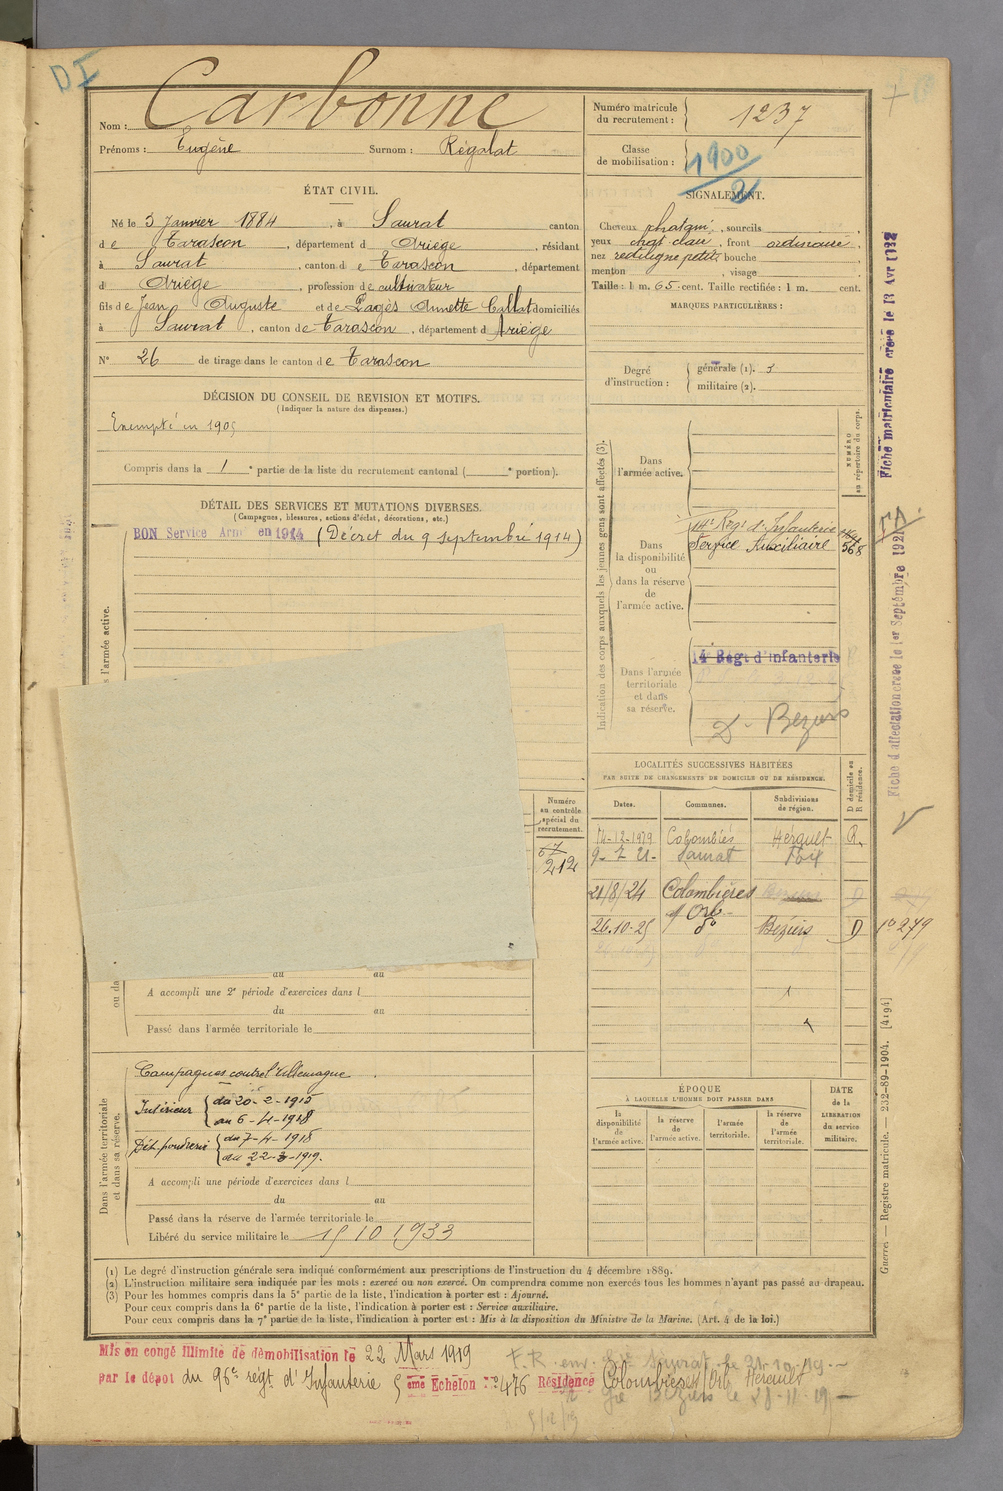 DI
Nom : Carbonne
Prénoms : Eugène Surnom : Régalat
Numéro matricule du recrutement : 1237
Classe de mobilisation : 1900/2
ÉTAT CIVIL.
Né le 3 Janvier 1884, à Saurat canton
de Tarascon, département d Ariège, résidant
à Saurat, canton de Tarascon, département
d Ariège, profession de cultivateur
fils de Jean Auguste et de Pagès Annette Callat domiciliés
à Saurat, canton de Tarascon, département d Ariège
N° 26 de tirage dans le canton de Tarascon
SIGNALEMENT.
Cheveux chatain, sourcils
yeux chat. clair, front ordinaire,
nez rectiligne petit, bouche
menton, visage
Taille : 1 m. 65 cent. Taille rectifiée : 1 m. cent.
MARQUES PARTICULIÈRES :
Degré d'instruction : générale (1). 3
militaire (2).
DÉCISION DU CONSEIL DE REVISION ET MOTIFS.
(Indiquer la nature des dispenses.)
Exempté en 1905
Compris dans la 1e partie de la liste du recrutement cantonal ( e portion).
DÉTAIL DES SERVICES ET MUTATIONS DIVERSES.
(Campagnes, blessures, actions d'éclat, décorations, etc.)
BON Service Armé en 1914 (Décret du 9 septembre 1914)
Indication des corps auxquels les jeunes gens sont affectés (3).
NUMÉRO au répertoire du corps.
Dans l'armée active.
Dans la disponibilité ou dans la réserve de l'armée active.
14e Régt d'Infanterie
Service Auxiliaire 568
Dans l'armée territoriale et dans sa réserve.
14 Régt d'Infanterie
D. Beziers
LOCALITÉS SUCCESSIVES HABITÉES
PAR SUITE DE CHANGEMENTS DE DOMICILE OU DE RÉSIDENCE.
Dates. Communes. Subdivisions de région. D domicile ou R résidence.
14-12-1919 Colombiès Herault R.
9-7 21- Saurat Foix
21/8/24 Colombières s/ Orb D
26.10.25 do Béziers D 10279
Numéro au contrôle spécial du recrutement.
212
au au
A accompli une 2e période d'exercices dans l
du au
Passé dans l'armée territoriale le
Dans l'armée territoriale et dans sa réserve.
Campagnes contre l'Allemagne
Intérieur du 20-2-1915
au 6-4-1918
Dét. poudrerie du 7-4-1918
au 22-3-1919.
A accompli une période d'exercices dans l
du au
Passé dans la réserve de l'armée territoriale le
Libéré du service militaire le 15 10 1933
ÉPOQUE
À LAQUELLE L'HOMME DOIT PASSER DANS
la disponibilité de l'armée active. la réserve de l'armée active. l'armée territoriale. la réserve de l'armée territoriale.
DATE de la LIBÉRATION du service militaire.
(1) Le degré d'instruction générale sera indiqué conformément aux prescriptions de l'instruction du 4 décembre 1889.
(2) L'instruction militaire sera indiquée par les mots : exercé ou non exercé. On comprendra comme non exercés tous les hommes n'ayant pas passé au drapeau.
(3) Pour les hommes compris dans la 5e partie de la liste, l'indication à porter est : Ajourné.
Pour ceux compris dans la 6e partie de la liste, l'indication à porter est : Service auxiliaire.
Pour ceux compris dans la 7e partie de la liste, l'indication à porter est : Mis à la disposition du Ministre de la Marine. (Art. 4 de la loi.)
Mis en congé illimité de démobilisation le 22 Mars 1919
par le dépôt du 96e régt d'Infanterie 5eme Echelon N° 476 Résidence Colombières s/ Orb Hérault
Fiche matriculaire créée le 13 Avr 1932
Fiche d'affectation créée le 1er Septembre 1921
Guerre. — Registre matricule. — 232-89-1904. [4194]